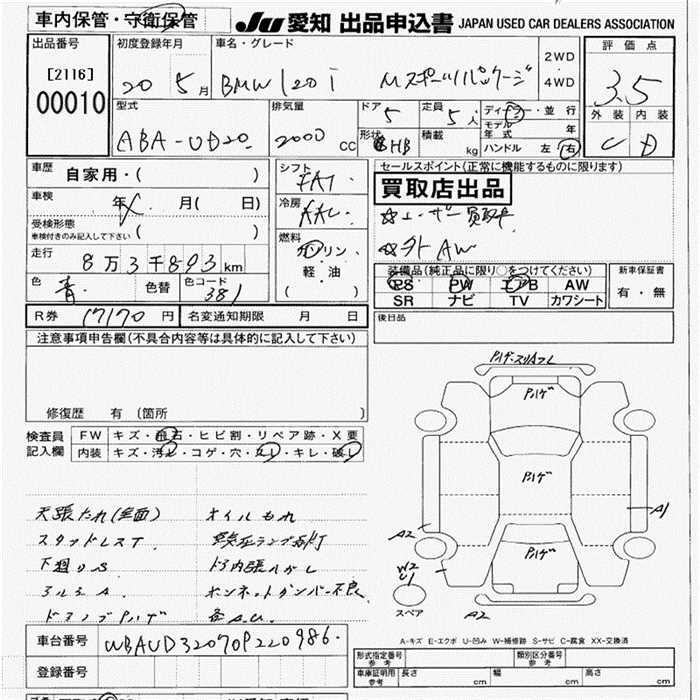 車内保管・守衛保管
JU 愛知 出品申込書 JAPAN USED CAR DEALERS ASSOCIATION
出品番号
[2116]
00010
初度登録年月
20 5月
車名・グレード
BMW 120i Mスポーツパッケージ
2WD
4WD
評価点
3.5
外装 内装
C D
型式
ABA-UD20
排気量
2000 cc
ドア
5
形状
HB
定員
5人
積載
kg
ディーラー・並行
モデル年式 年
ハンドル 左・右
車歴 自家用・( )
車検 年 月( 日)
受検形態
車検付きのみ記入して下さい ( )
走行 8万3千893km
色 青 色替 色コード 381
シフト
FAT
冷房
AAC
燃料
ガソリン
軽・油
( )
セールスポイント(正常に機能するものに限ります)
買取店出品
☆ユーザー買取車
☆外AW
装備品(純正品に限り〇をつけてください)
PS PW エアB AW
SR ナビ TV カワシート
新車保証書
有・無
R券 17170円
名変通知期限 月 日
後日品
注意事項申告欄(不具合内容等は具体的に記入して下さい)
修復歴 有 (箇所 )
検査員記入欄
FW キズ・飛石・ヒビ割・リペア跡・X要
内装 キズ・汚レ・コゲ・穴・スレ・キレ・破レ
天張たれ(全面) オイルもれ
スタッドレスT.
下廻りS ドア内張はがし
アルミA. ボンネットダンパー不良
ドアノブPハゲ 各A.U.
Pハゲ
Pハゲ
Pハゲ
A1
A2
W2
U1
スペア
A2
A-キズ E-エクボ U-凹み W-補修跡 S-サビ C-腐食 XX-交換済
車台番号 WBAUD32070P220986.
登録番号
形式指定番号
参考
類別区分番号
参考
車庫証明用
参考
長さ cm 幅 cm 高さ cm